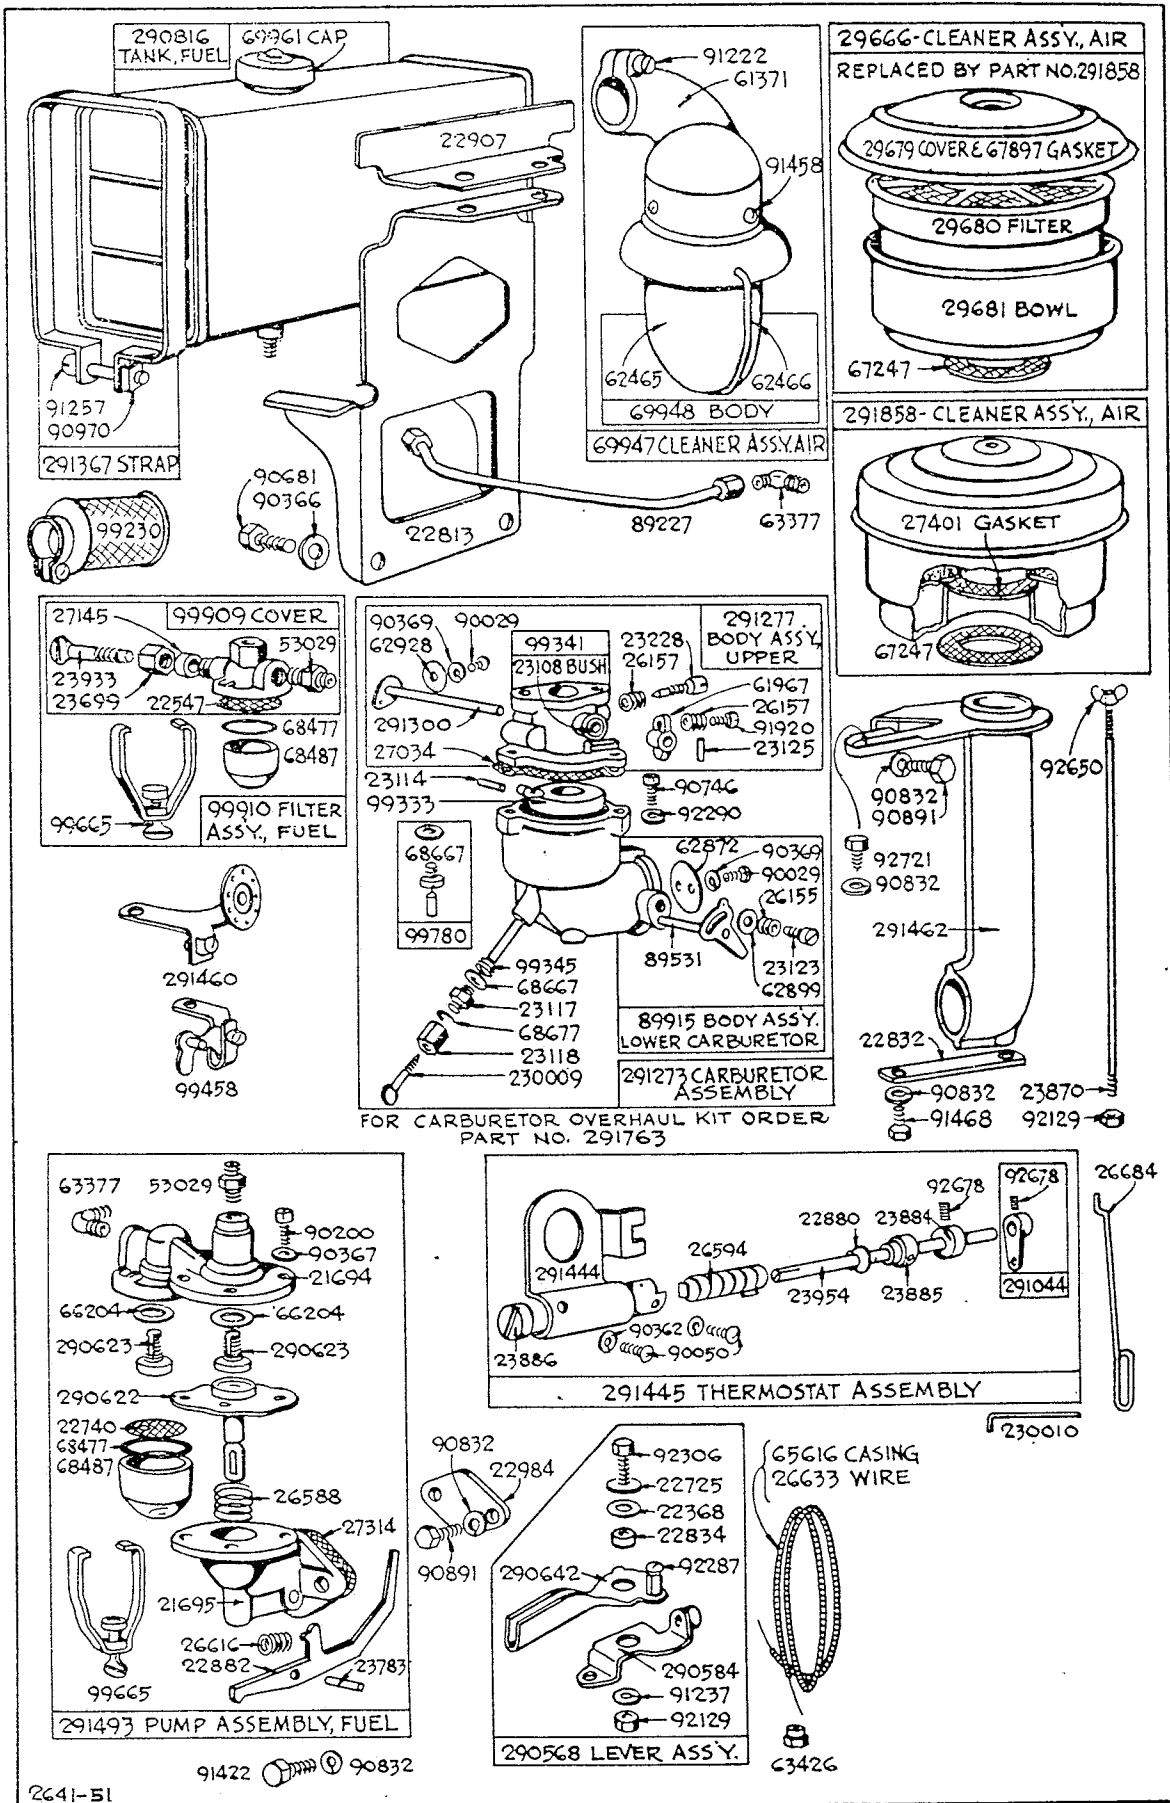 290816
TANK, FUEL
69961 CAP
22907
91257
90970
291367 STRAP
99230
90681
90366
22813
89227
63377
91222
61371
91458
62465
62466
69948 BODY
69947 CLEANER ASSY. AIR
29666-CLEANER ASSY., AIR
REPLACED BY PART NO. 291858
29679 COVER & 67897 GASKET
29680 FILTER
29681 BOWL
67247
291858- CLEANER ASSY., AIR
27401 GASKET
67247
27145
99909 COVER
53029
23933
23699
22547
68477
68487
99665
99910 FILTER
ASSY., FUEL
291460
99458
90369
62928
90029
99341
23108 BUSH
291277
BODY ASSY,
UPPER
23228
26157
61967
26157
91920
23125
291300
27034
23114
99333
90746
92290
68667
99780
62872
90369
90029
26155
89531
23123
62899
99345
68667
23117
68677
23118
230009
89915 BODY ASSY.
LOWER CARBURETOR
291273 CARBURETOR
ASSEMBLY
FOR CARBURETOR OVERHAUL KIT ORDER
PART NO. 291763
92650
90832
90891
92721
90832
291462
22832
90832
91468
23870
92129
63377
53029
90200
90367
21694
66204
66204
290623
290623
290622
22740
68477
68487
26588
27314
21695
26616
22882
23783
99665
291493 PUMP ASSEMBLY, FUEL
91422
90832
291444
26594
22880
23884
92678
92678
23954
23885
291044
23886
90362
90050
291445 THERMOSTAT ASSEMBLY
26684
230010
90832
22984
90891
92306
22725
22368
22834
290642
92287
290584
91237
92129
290568 LEVER ASS'Y.
65616 CASING
26633 WIRE
63426
2641-51